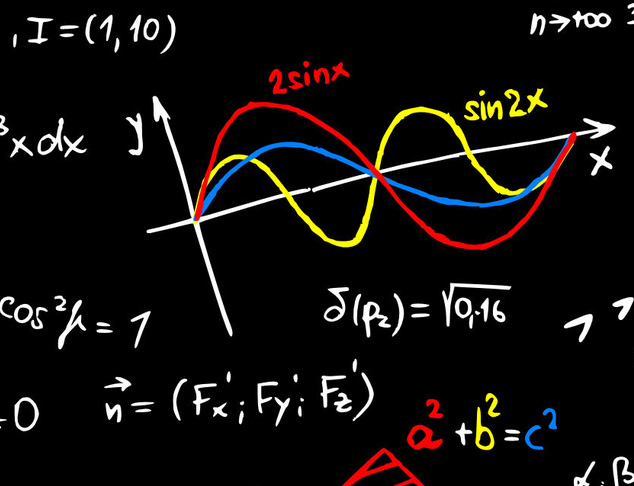 , I = (1, 10)
n→+∞
2sinx
sin2x
y
³x dx
x
cos²β = 1
δ(p₂) = √0,16
0
n⃗ = (F'x; F'y; F'z)
a² + b² = c²
α, β